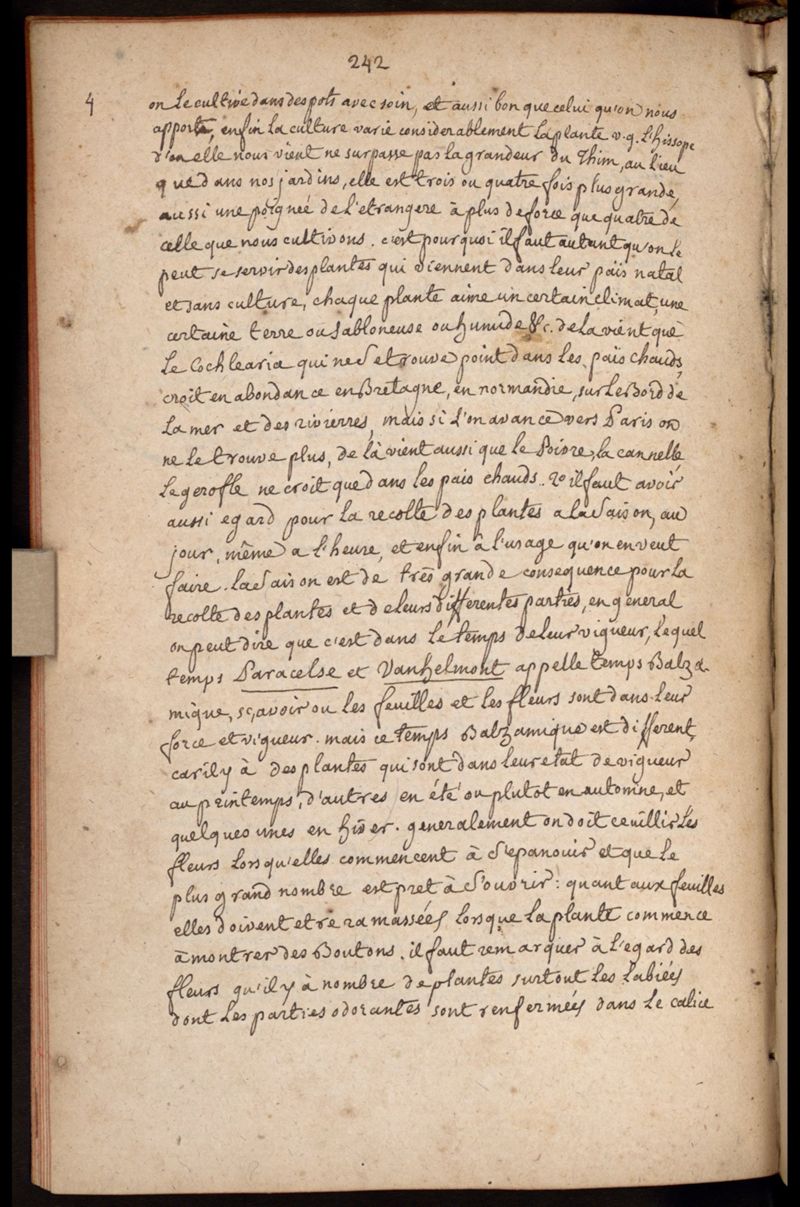 242
4
on Le cultive dans des pots avec soin, et aussi bon que celui qu'on nous
apporte, enfin La culture varie considerablement La plante v. g. L'hissope
d'ou elle nous vient ne surpasse pas la grandeur du Thim, au lieu
que dans nos jardins, elle est trois ou quatre fois plus grande,
aussi une poignée de L'etrangere à plus de force que quatre de
celle que nous cultivons. c'est pourquoi il faut autant qu'on le
peut se servir des plantes qui viennent dans leur païs natal
et sans culture, chaque plante aime un certain climat, une
certaine terre ou Sabloneuse ou humide &c. de la vient que
Le Cochlearia qui ne Se trouve point dans Les païs chauds,
croit en abondance en Bretagne, en normandie, sur Le Bord de
La mer et des rivierres, mais si L'on avance vers Paris on
ne Le trouve plus, de là vient aussi que le Poivre, la cannelle
Le gerofle ne croit que dans les pais chauds. 2º il faut avoir
aussi egard pour La recolte des plantes a La Saison, au
jour, même a L'heure, et enfin à L'usage qu'on en veut
faire. La Saison est de tres grande consequence pour La
recolte des plantes et de leurs differentes parties, en general
on peut dire que c'est dans Le temps de leur vigueur, Lequel
temps Paracelse et Vanhelmont appelle temps Balza-
mique, sçavoir ou les feuilles et les fleurs sont dans leur
force et vigueur. mais ce temps Balzamique est different,
car il y à des plantes qui sont dans leur etat de vigueur
au printemps, d'autres en été ou plutot en automne, et
quelques unes en hiver. generalement on doit ceuillir Les
fleurs Lorsqu'elles commencent à S'epanouir et que Le
plus grand nombre est pret à S'ouvrir: quant aux feuilles
elles doivent etre ramassées Lorsque La plante commence
à montrer des Boutons. il faut remarquer à L'egard des
fleurs qu'il y à nombre de plantes surtout Les Labiées
dont Les parties odorantes sont renfermées dans Le calice